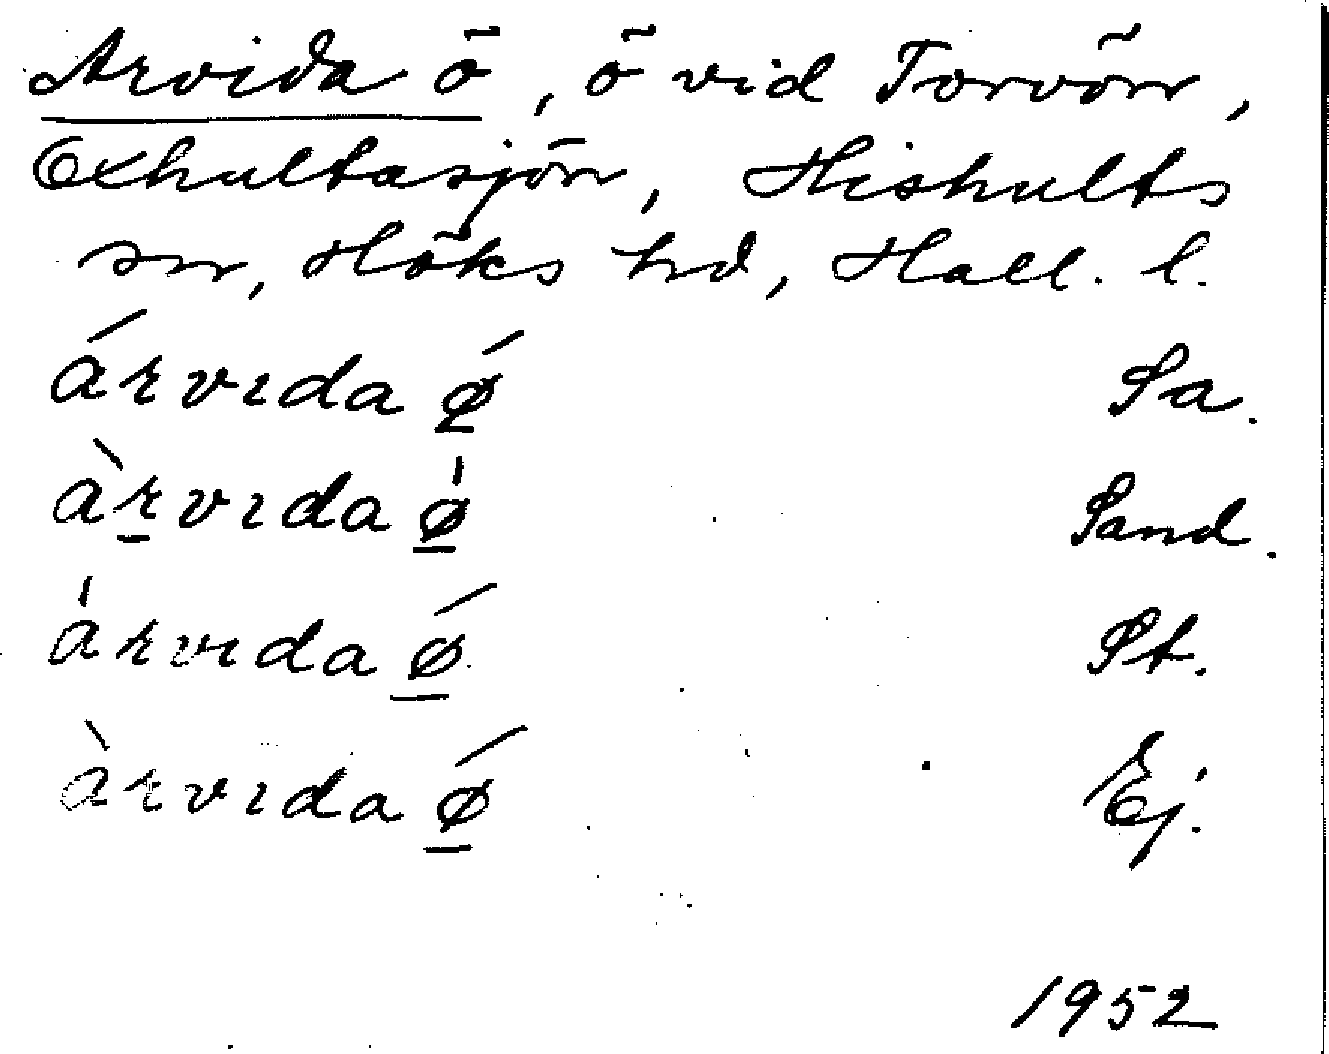 Arvida ö, ö vid Torvön,
Exhultasjön, Hishults
sn, Höks hd, Hall. l.
árvıda ǿ Sa.
àrvıda ø̍ Sand.
a̍rvıda ǿ St.
àrvıda ǿ Ej.
1952